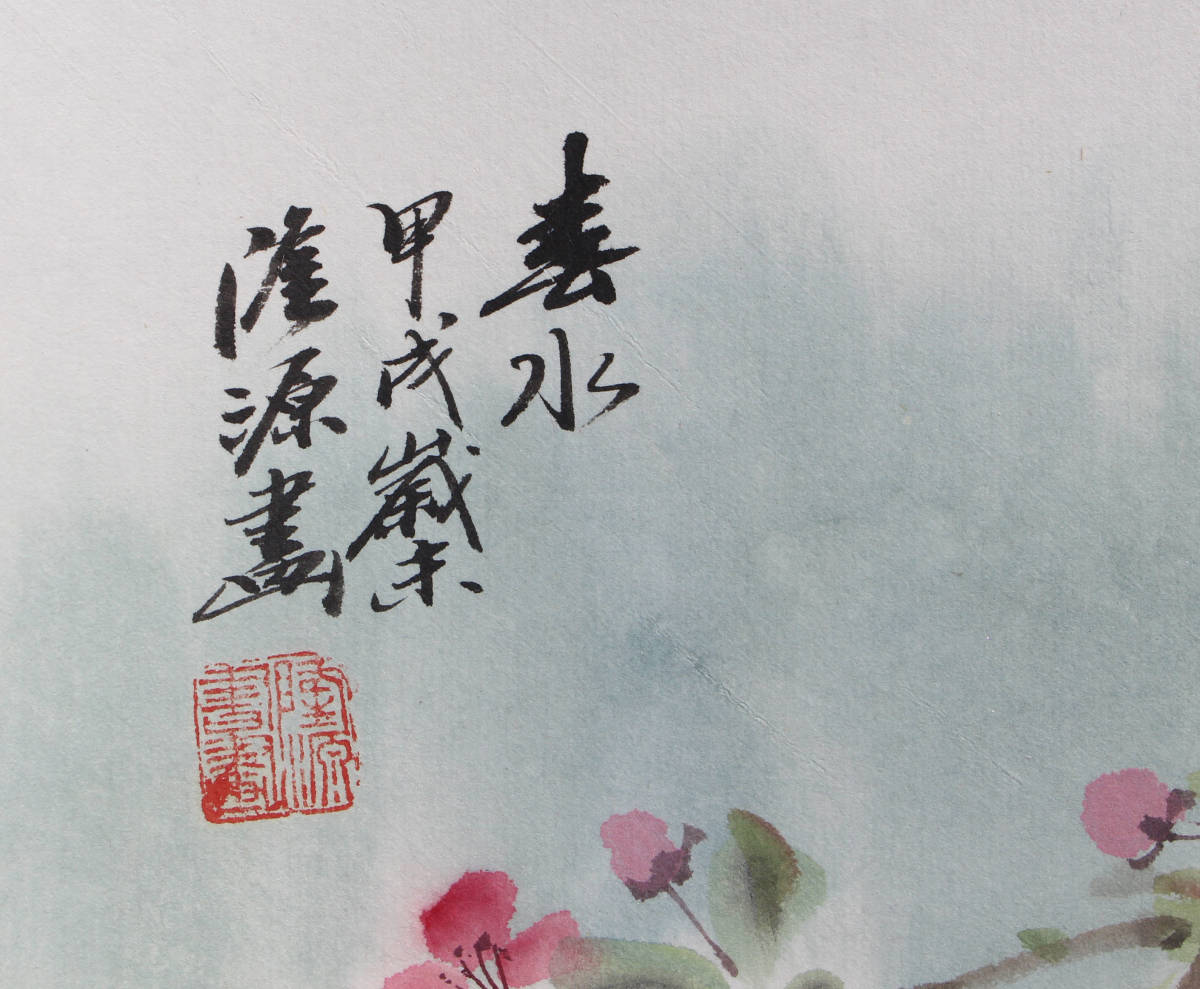 春水
甲戌歲末
隆源畫
隆源
書畫